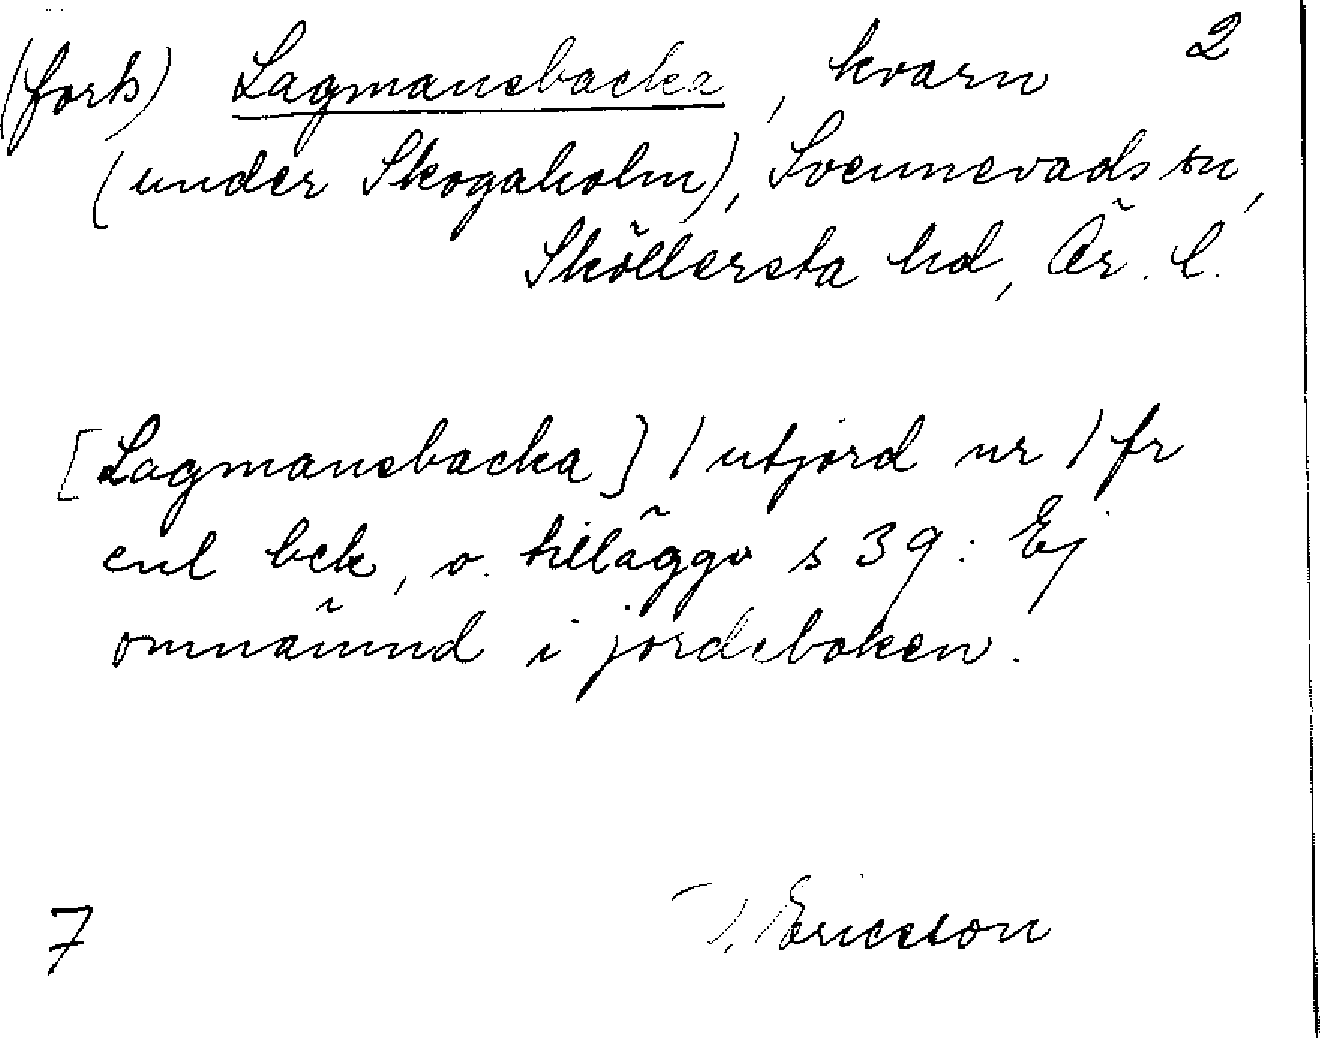 (fork) Lagmansbacka, kvarn 2
(under Skogaholm), Svennevads sn,
Sköllersta hd, Ör. l.
[Lagmansbacka] / utjord nr 1 fr
enl bck, o. tillägges s 39: Ej
omnämnd i jordeboken.
7 Ericsson